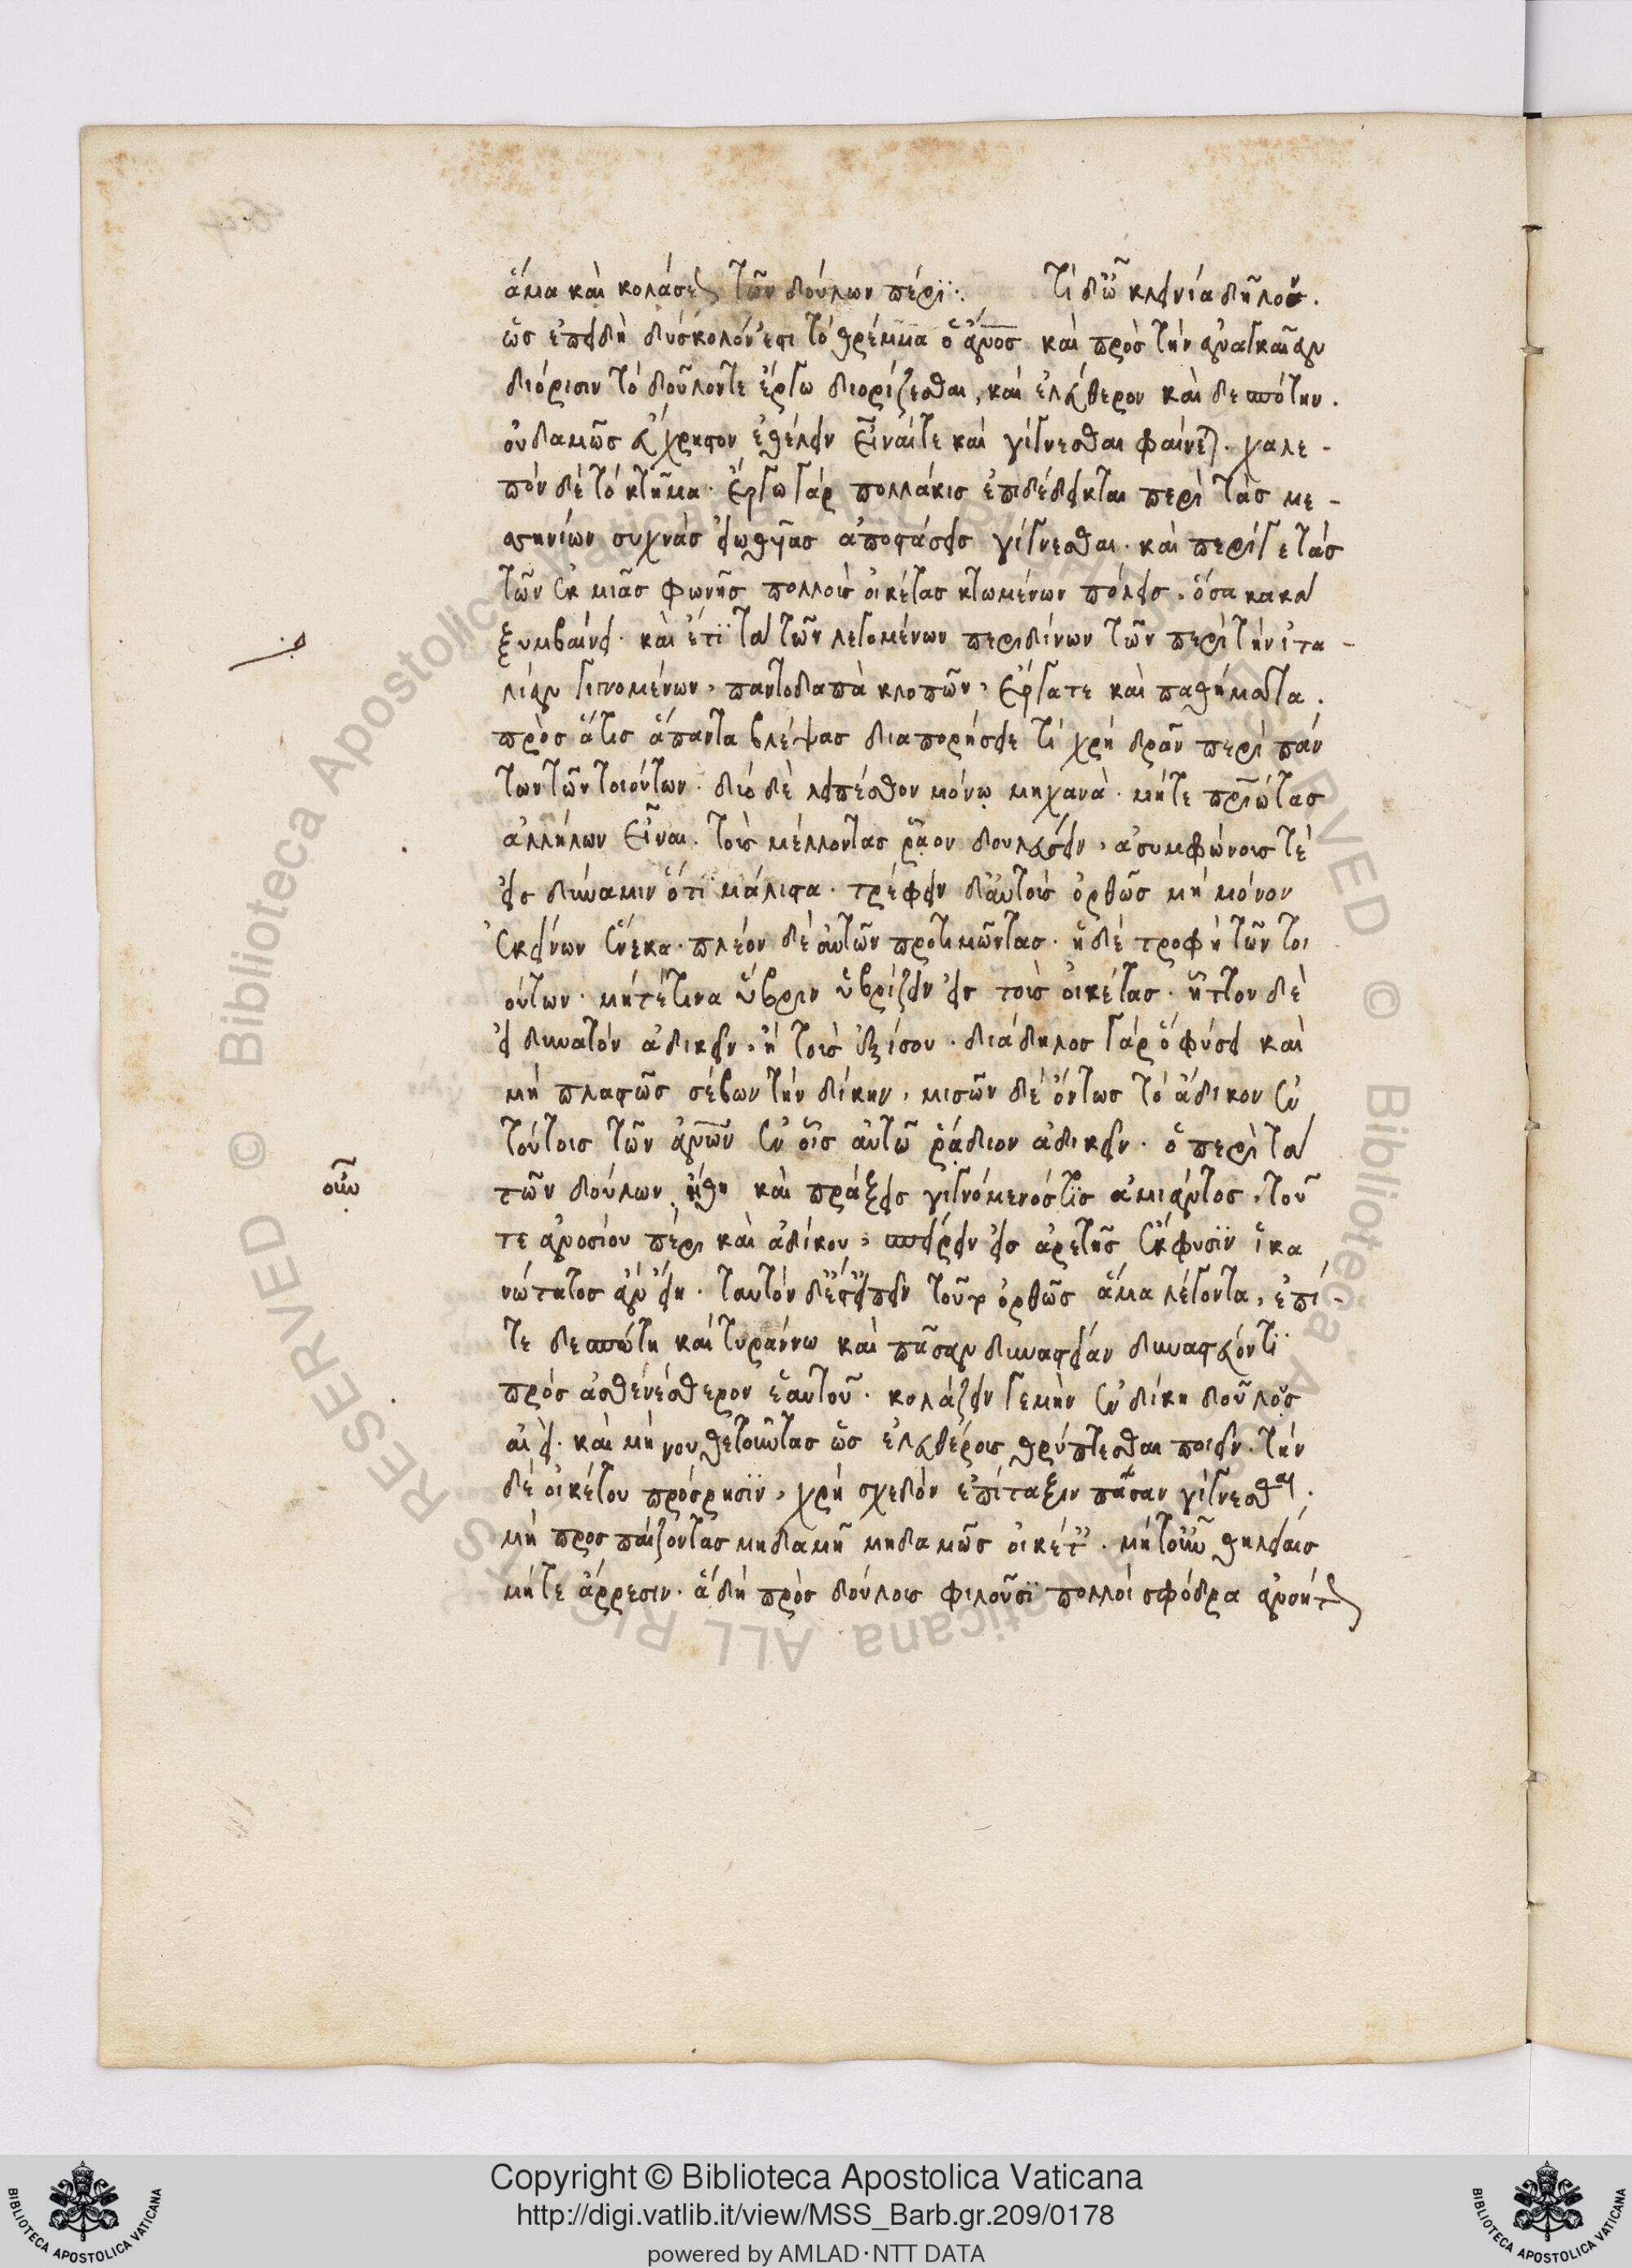 ἅμα καὶ κολάσεις τῶν δούλων πέρϊ·. Τί δ' οὖν κλεινία δῆλον.
ὡς ἐπειδὴ δύσκολόν ἐστι τὸ θρέμμα ὁ ἄνος καὶ πρὸς τὴν ἀναγκαῖαν
διόρισιν τὸ δοῦλόντε ἔργω διορίζεσθαι, καὶ ἐλεύθερον καὶ δεσπότην.
οὐδαμῶς εὔχρηστον ἐθέλειν εἶναίτε καὶ γίγνεσθαι φαίνεται. χαλε-
πὸν δὲ τὸ κτῆμα. ἔργω γὰρ πολλάκις ἐπιδέδεικται περὶ τὰς με-
σηνίων συχνὰς εἰωθυίας ἀποστάσεις γίγνεσθαι. καὶ περίγε τὰς
τῶν ἐκ μιᾶς φωνῆς πολλοὺς οἰκέτας κτωμένων πόλεις. ὅσα κακὰ
ξυμβαίνει. καὶ ἔτϊ τὰ τῶν λεγομένων περιδίνων τῶν περὶ τὴν ἰτα-
λίαν γινομένων, παντοδαπὰ κλοπῶν, ἔργατε καὶ παθήματα.
πρὸς ἅτις ἅπαντα βλέψας διαπορήσειε τί χρὴ δρᾶν περὶ πάν
των τῶν τοιούτων. δύο δὲ λείπεσθον μόνω μηχανά. μήτε πατριώτας
ἀλλήλων εἶναι. τοὺς μέλλοντας ῥᾶον δουλεύσειν, ἀσυμφώνους τὲ
εἰς δύναμιν ὅτϊ μάλιστα. τρέφειν δ' αὐτοὺς ὀρθῶς μὴ μόνον
ἐκείνων ἕνεκα. πλέον δὲ αὐτῶν προτιμῶντας. ἡ δὲ τροφὴ τῶν τοι
ούτων. μήτέτινα ὕβριν ὑβρίζειν εἰς τοὺς οἰκέτας. ἧττον δὲ
εἰ δυνατὸν ἀδικεῖν, ἢ τοὺς ἐξίσου. διάδηλος γὰρ ὁ φύσει καὶ
μὴ πλαστῶς σέβων τὴν δίκην, μισῶν δὲ ὄντως τὸ ἄδικον ἐν
τούτοις τῶν ἀνῶν ἐν οἷς αὐτῶ ῥάδιον ἀδικεῖν. ὁ περὶ τὰ
τῶν δούλων ἤθη καὶ πράξεις γιγνόμενός τϊς ἀμίαντος, τοῦ
τε ἀνοσίου πέρι καὶ ἀδίκου, σπείρειν εἰς ἀρετῆς ἔκφυσϊν ἱκα
νώτατος ἂν εἴη. ταυτὸν δέ ἐστ' εἰπεῖν τοῦτ ὀρθῶς ἅμα λέγοντα, ἐπί-
τε δεσπότη καὶ τυράννω καὶ πᾶσαν δυναστείαν δυναστεύοντϊ
πρὸς ἀσθενέστερον ἑαυτοῦ. κολάζειν γεμὴν ἐν δίκη δούλους
αἰεί. καὶ μὴ νουθετοῦντας ὡς ἐλευθέρους θρύπτεσθαι ποιεῖν. τὴν
δὲ οἰκέτου πρόσρησϊν, χρὴ σχεδὸν ἐπίταξιν πᾶσαν γίγνεσθαι.
μὴ προσπαίζοντας μηδαμῆ μηδαμῶς οἰκέταις. μήτ' οὖν θηλείαις
μήτε ἄρρεσιν. ἃ δὴ πρὸς δούλους φιλοῦσϊ πολλοὶ σφόδρα ἀνοήτως
οὖν